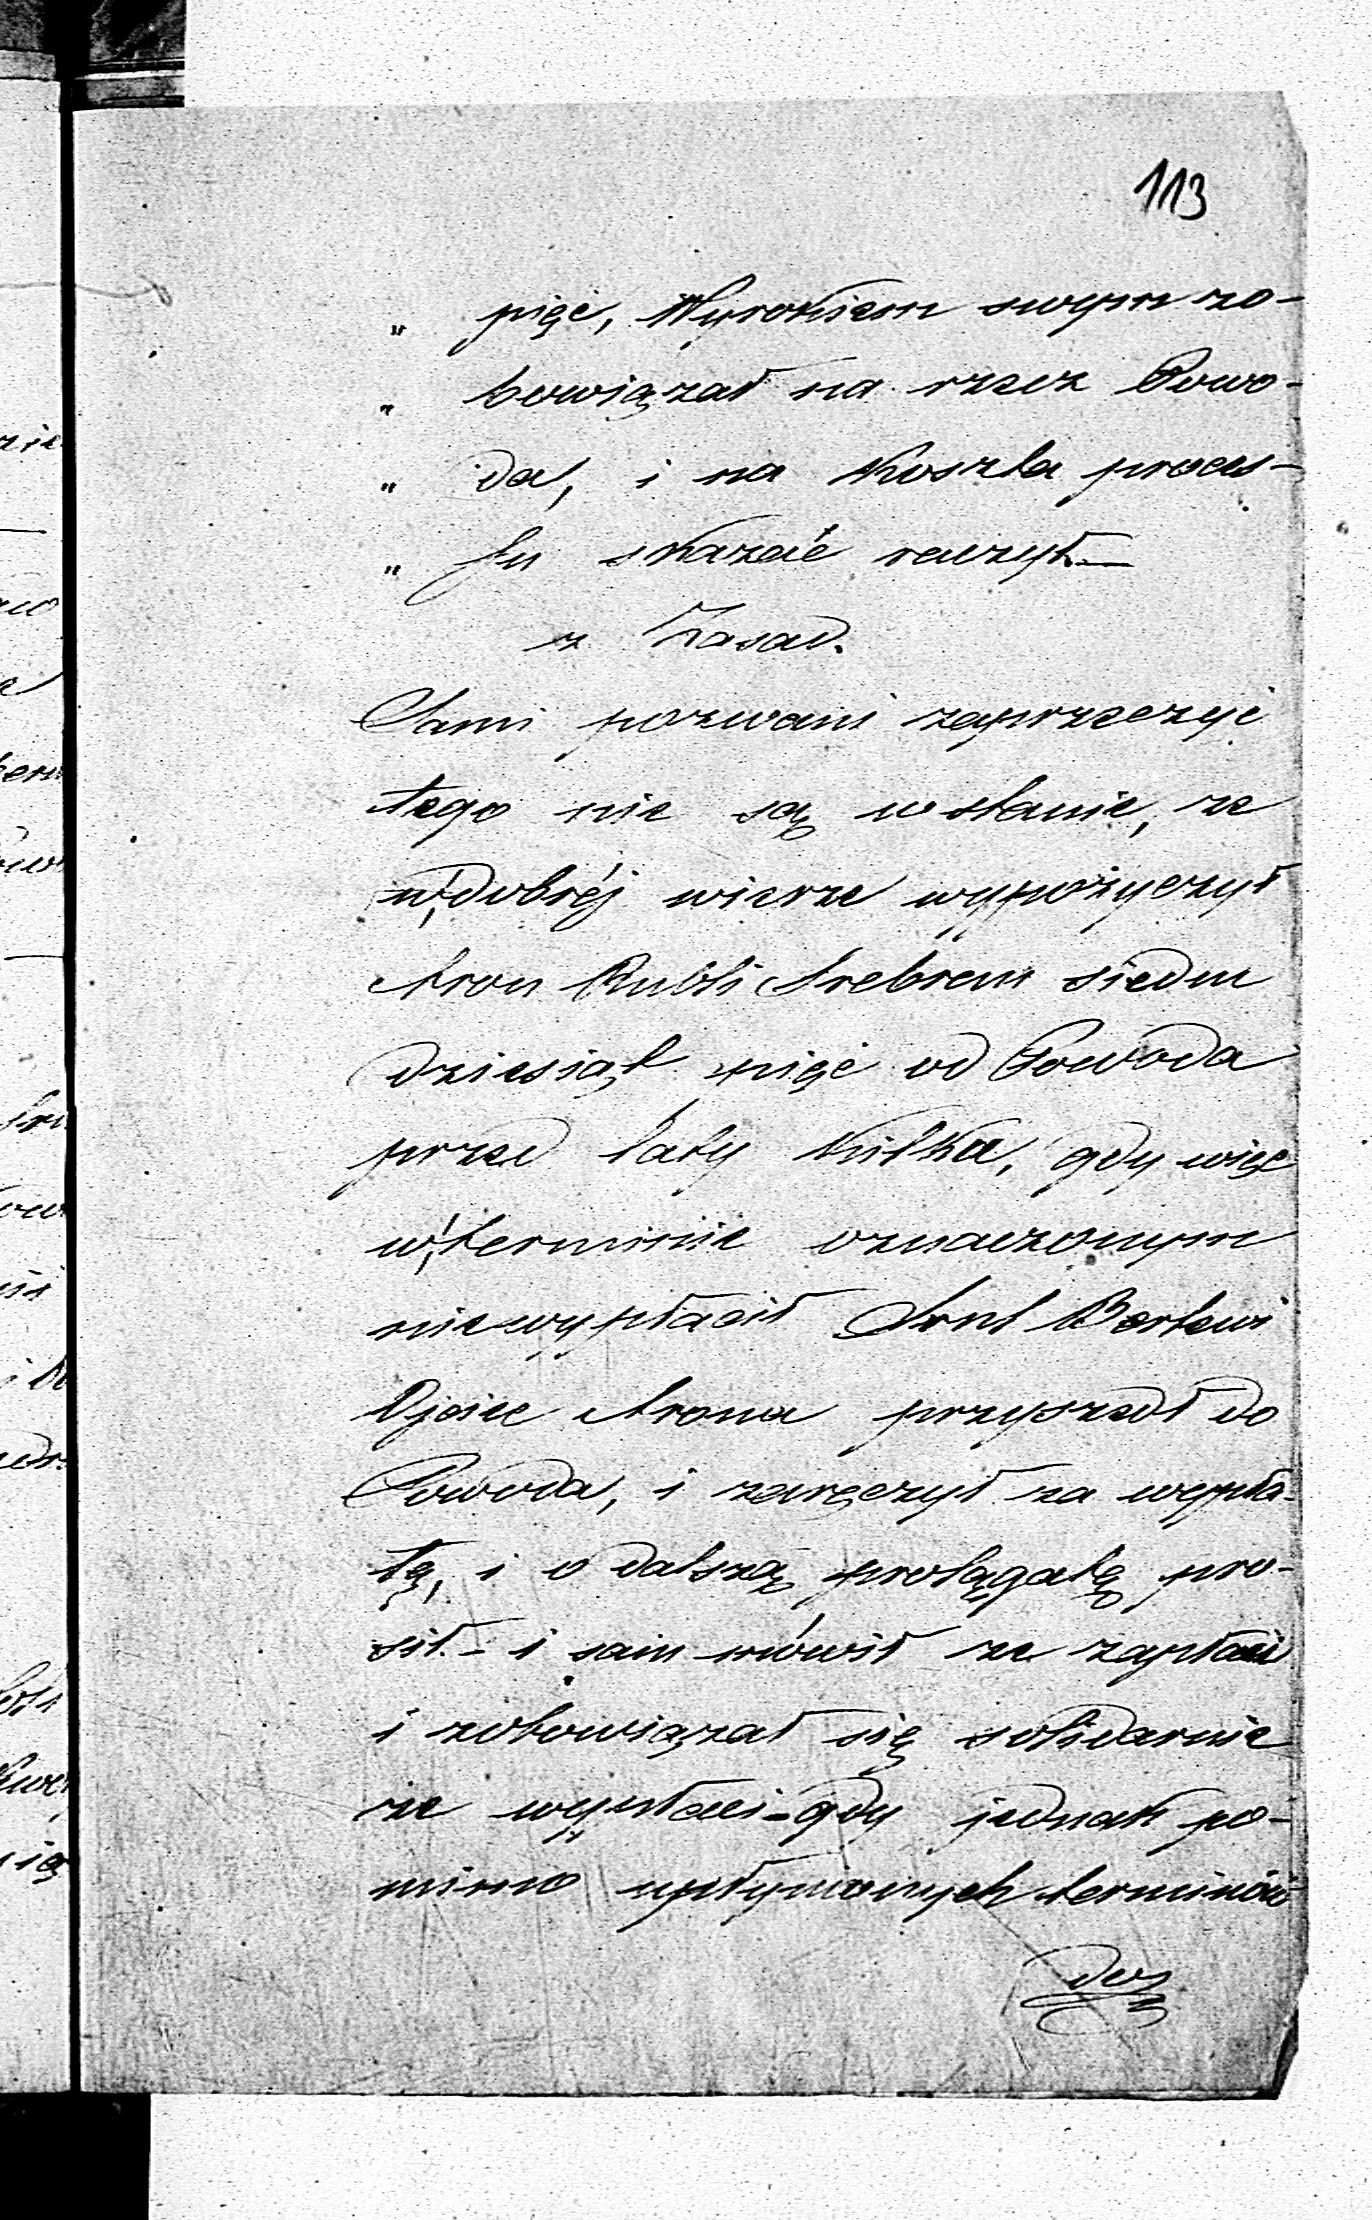 113
„ pięć, Wyrokiem swym zo-
„ bowiązał na rzecz Powo-
„ da, i na koszta proces-
„ su skazać raczył.—
z Zasad.
Sami pozwani zaprzeczyć
tego nie są w stanie, że
w dobréj wierze wypożyczył
Aron Rubli Srebrem siedm
dziesiąt pięć od Powoda
przed laty kilka, gdy więc
w terminie oznaczonym
niewypłacił Srul Berlewi
Ojciec Arona przyszedł do
Powoda, i zaręczył za wypła-
tę, i o dalszą prolągatę pro-
sił.- i sam mówił że zapłaci
i zobowiązał się solidarnie
że wypłaci - gdy jednak po-
mimo upłynionych terminów